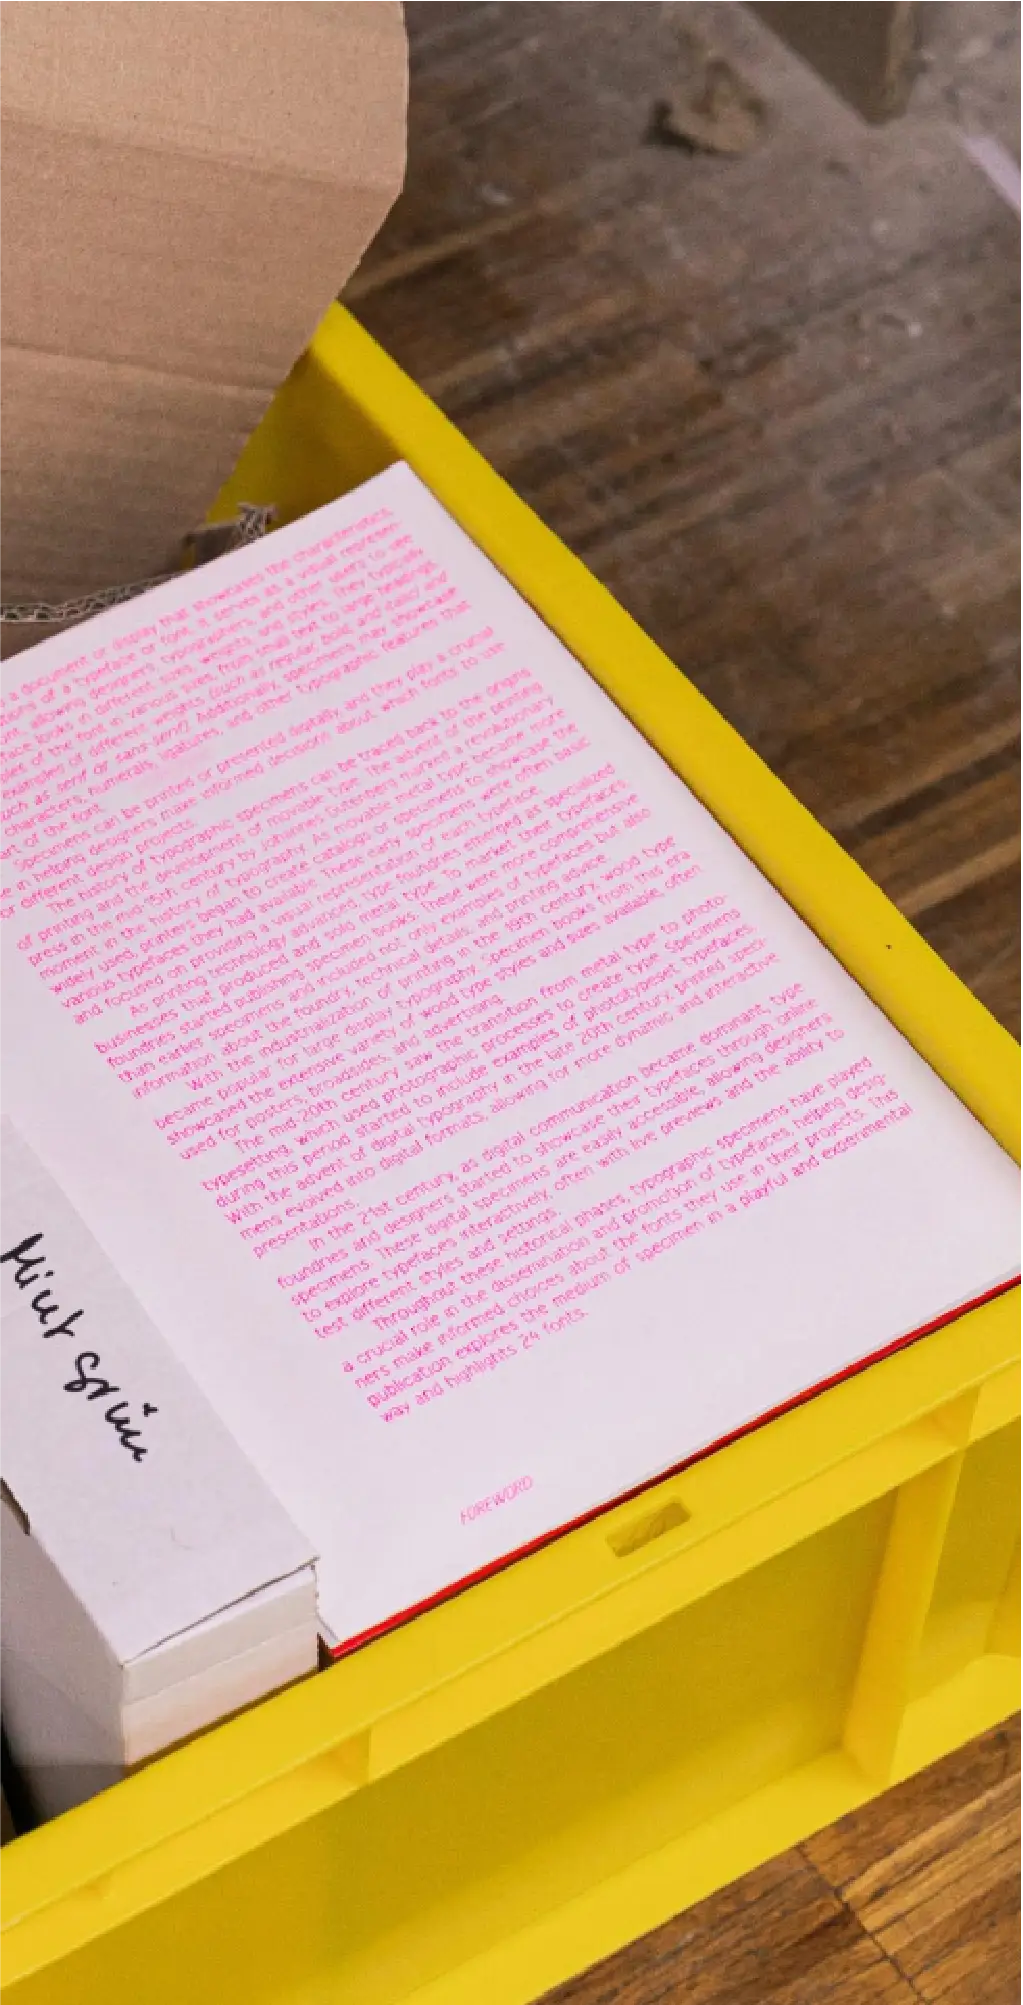 a document or display that showcases the characteristics,
of a typeface or font. It serves as a visual represen-
allowing designers, typographers, and other users to see
looks in different sizes, weights, and styles. They typically
of the font in various sizes, from small text to large headings,
examples of different weights (such as regular, bold, and italic) and
such as serif or sans serif). Additionally, specimens may showcase
characters, numerals, ligatures, and other typographic features that
of the font.
Specimens can be printed or presented digitally, and they play a crucial
in helping designers make informed decisions about which fonts to use
or different design projects.
The history of typographic specimens can be traced back to the origins
of printing and the development of movable type. The advent of the printing
press in the mid-15th century by Johannes Gutenberg marked a revolutionary
moment in the history of typography. As movable metal type became more
widely used, printers began to create catalogs or specimens to showcase the
various typefaces they had available. These early specimens were often basic
and focused on providing a visual representation of each typeface.
As printing technology advanced, type foundries emerged as specialized
businesses that produced and sold metal type. To market their typefaces,
foundries started publishing specimen books. These were more comprehensive
than earlier specimens and included not only examples of typefaces but also
information about the foundry, technical details, and printing advice.
With the industrialization of printing in the 19th century, wood type
became popular for large display typography. Specimen books from this era
showcased the extensive variety of wood type styles and sizes available, often
used for posters, broadsides, and advertising.
The mid-20th century saw the transition from metal type to photo-
typesetting, which used photographic processes to create type. Specimens
during this period started to include examples of phototypeset typefaces.
With the advent of digital typography in the late 20th century, printed speci-
mens evolved into digital formats, allowing for more dynamic and interactive
presentations.
In the 21st century, as digital communication became dominant, type
foundries and designers started to showcase their typefaces through online
specimens. These digital specimens are easily accessible, allowing designers
to explore typefaces interactively, often with live previews and the ability to
test different styles and settings.
Throughout these historical phases, typographic specimens have played
a crucial role in the dissemination and promotion of typefaces, helping desig-
ners make informed choices about the fonts they use in their projects. This
publication explores the medium of specimen in a playful and experimental
way and highlights 24 fonts.
FOREWORD
Mint grün